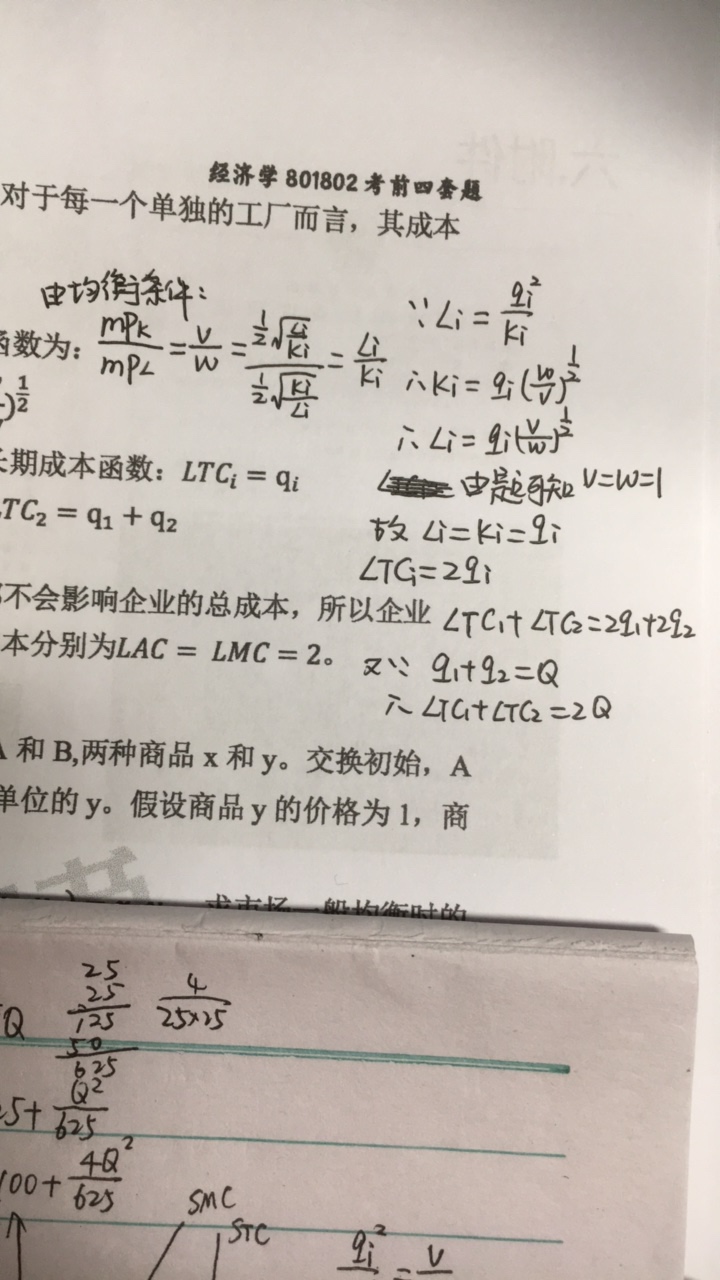 经济学801802考前四套题
对于每一个单独的工厂而言，其成本
由均衡条件：
函数为：MPK/MPL = V/W = (1/2 √(Li/Ki))/(1/2 √(Ki/Li)) = Li/Ki
)^(1/2)
∵ Li = qi²/Ki
∴ Ki = qi(W/V)^(1/2)
∴ Li = qi(V/W)^(1/2)
长期成本函数：LTCᵢ = qᵢ
由题可知 V=W=1
TC₂ = q₁ + q₂
故 Li=Ki=qi
LTCi=2qi
不会影响企业的总成本，所以企业
LTC1+LTC2=2q1+2q2
本分别为LAC = LMC = 2。
又∵ q1+q2=Q
∴ LTC1+LTC2=2Q
A 和 B,两种商品 x 和 y。交换初始，A
单位的 y。假设商品 y 的价格为 1，商
求市场一般均衡时的
25
25
125
50
625
4/(25×25)
Q
25+ Q²/625
100+ 4Q²/625
SMC
STC
qi² = V